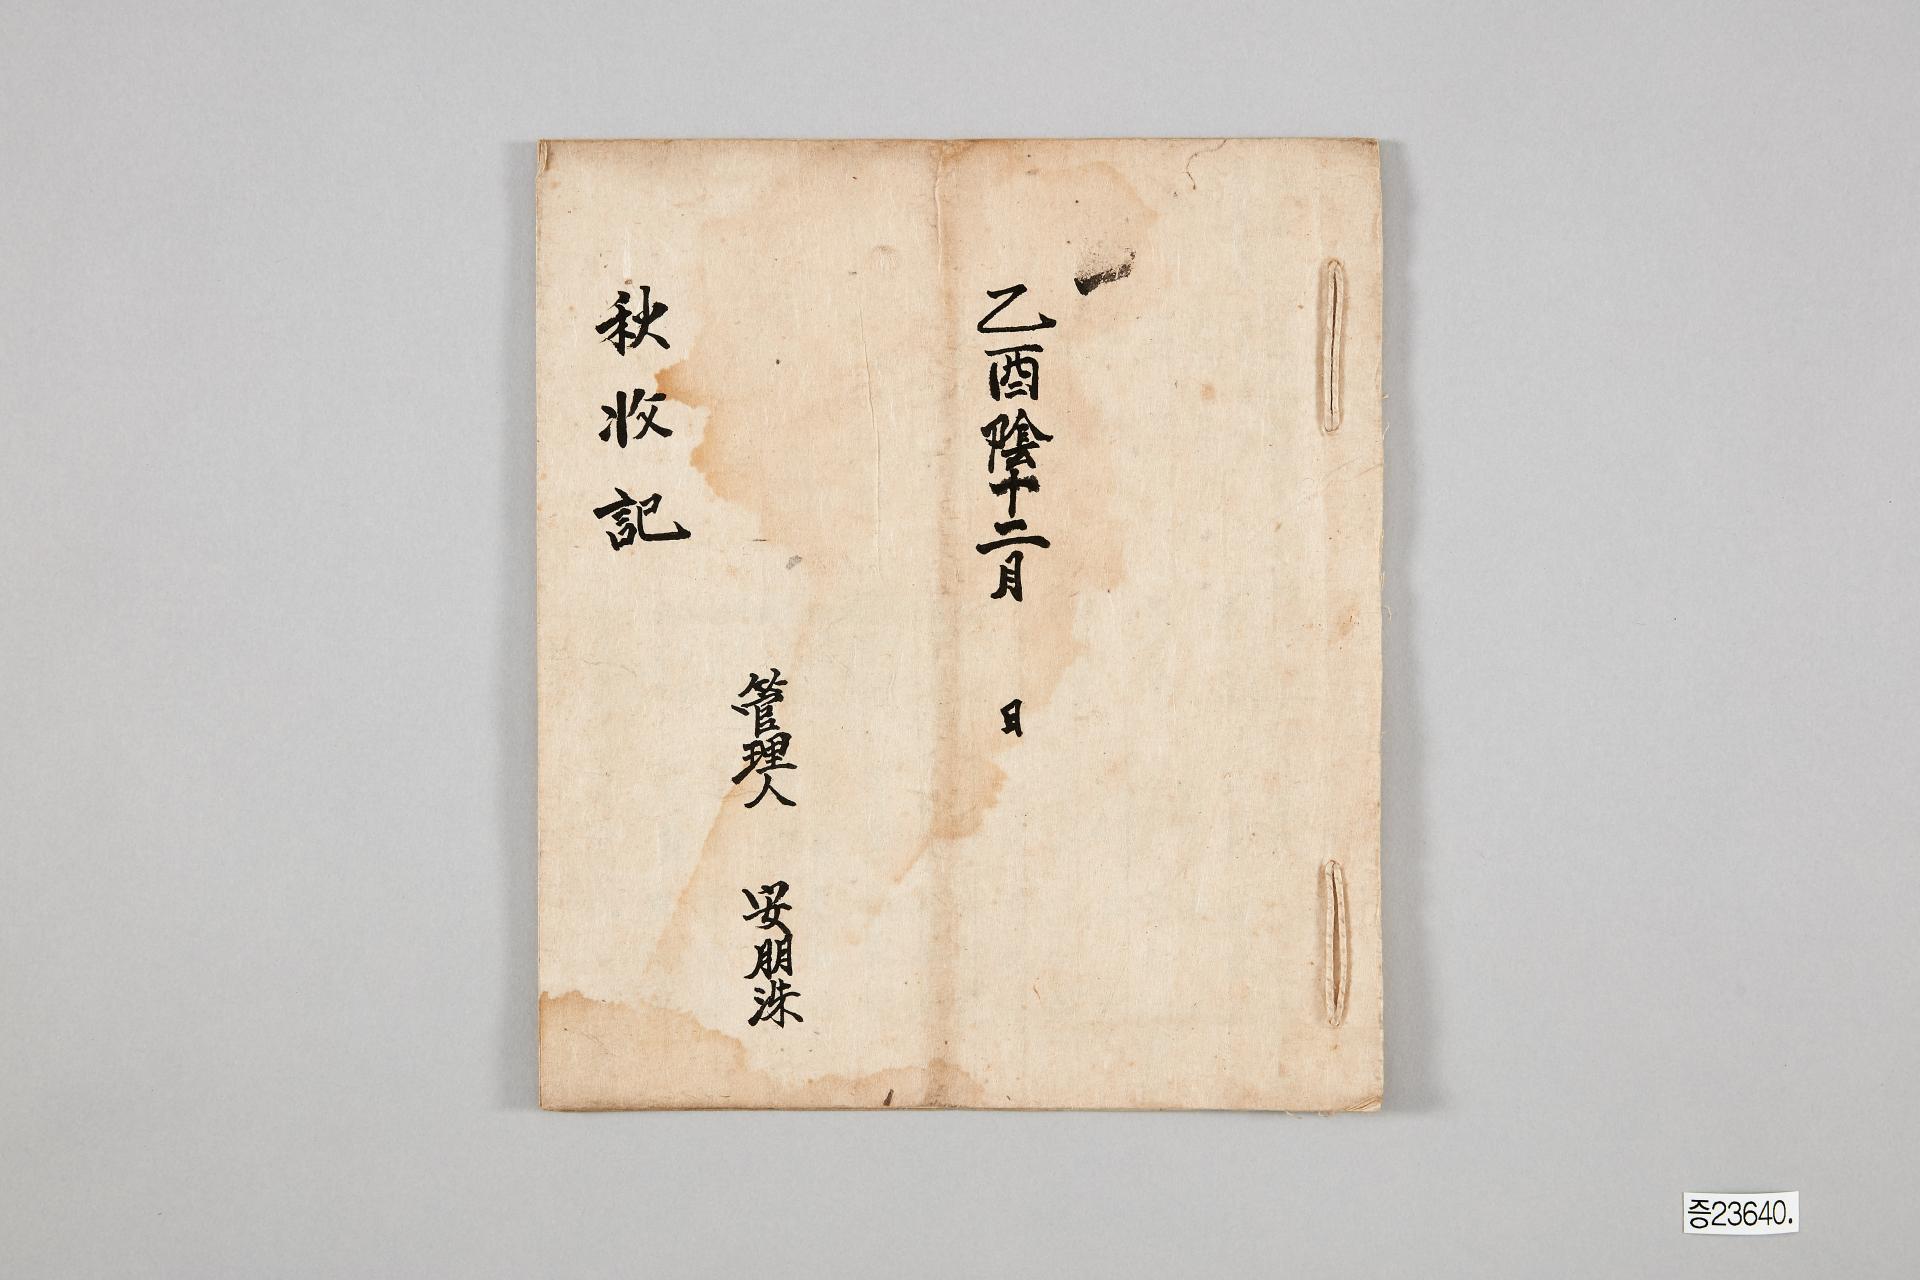 乙酉陰十二月 日
管理人 安朋洙
秋收記
증23640.